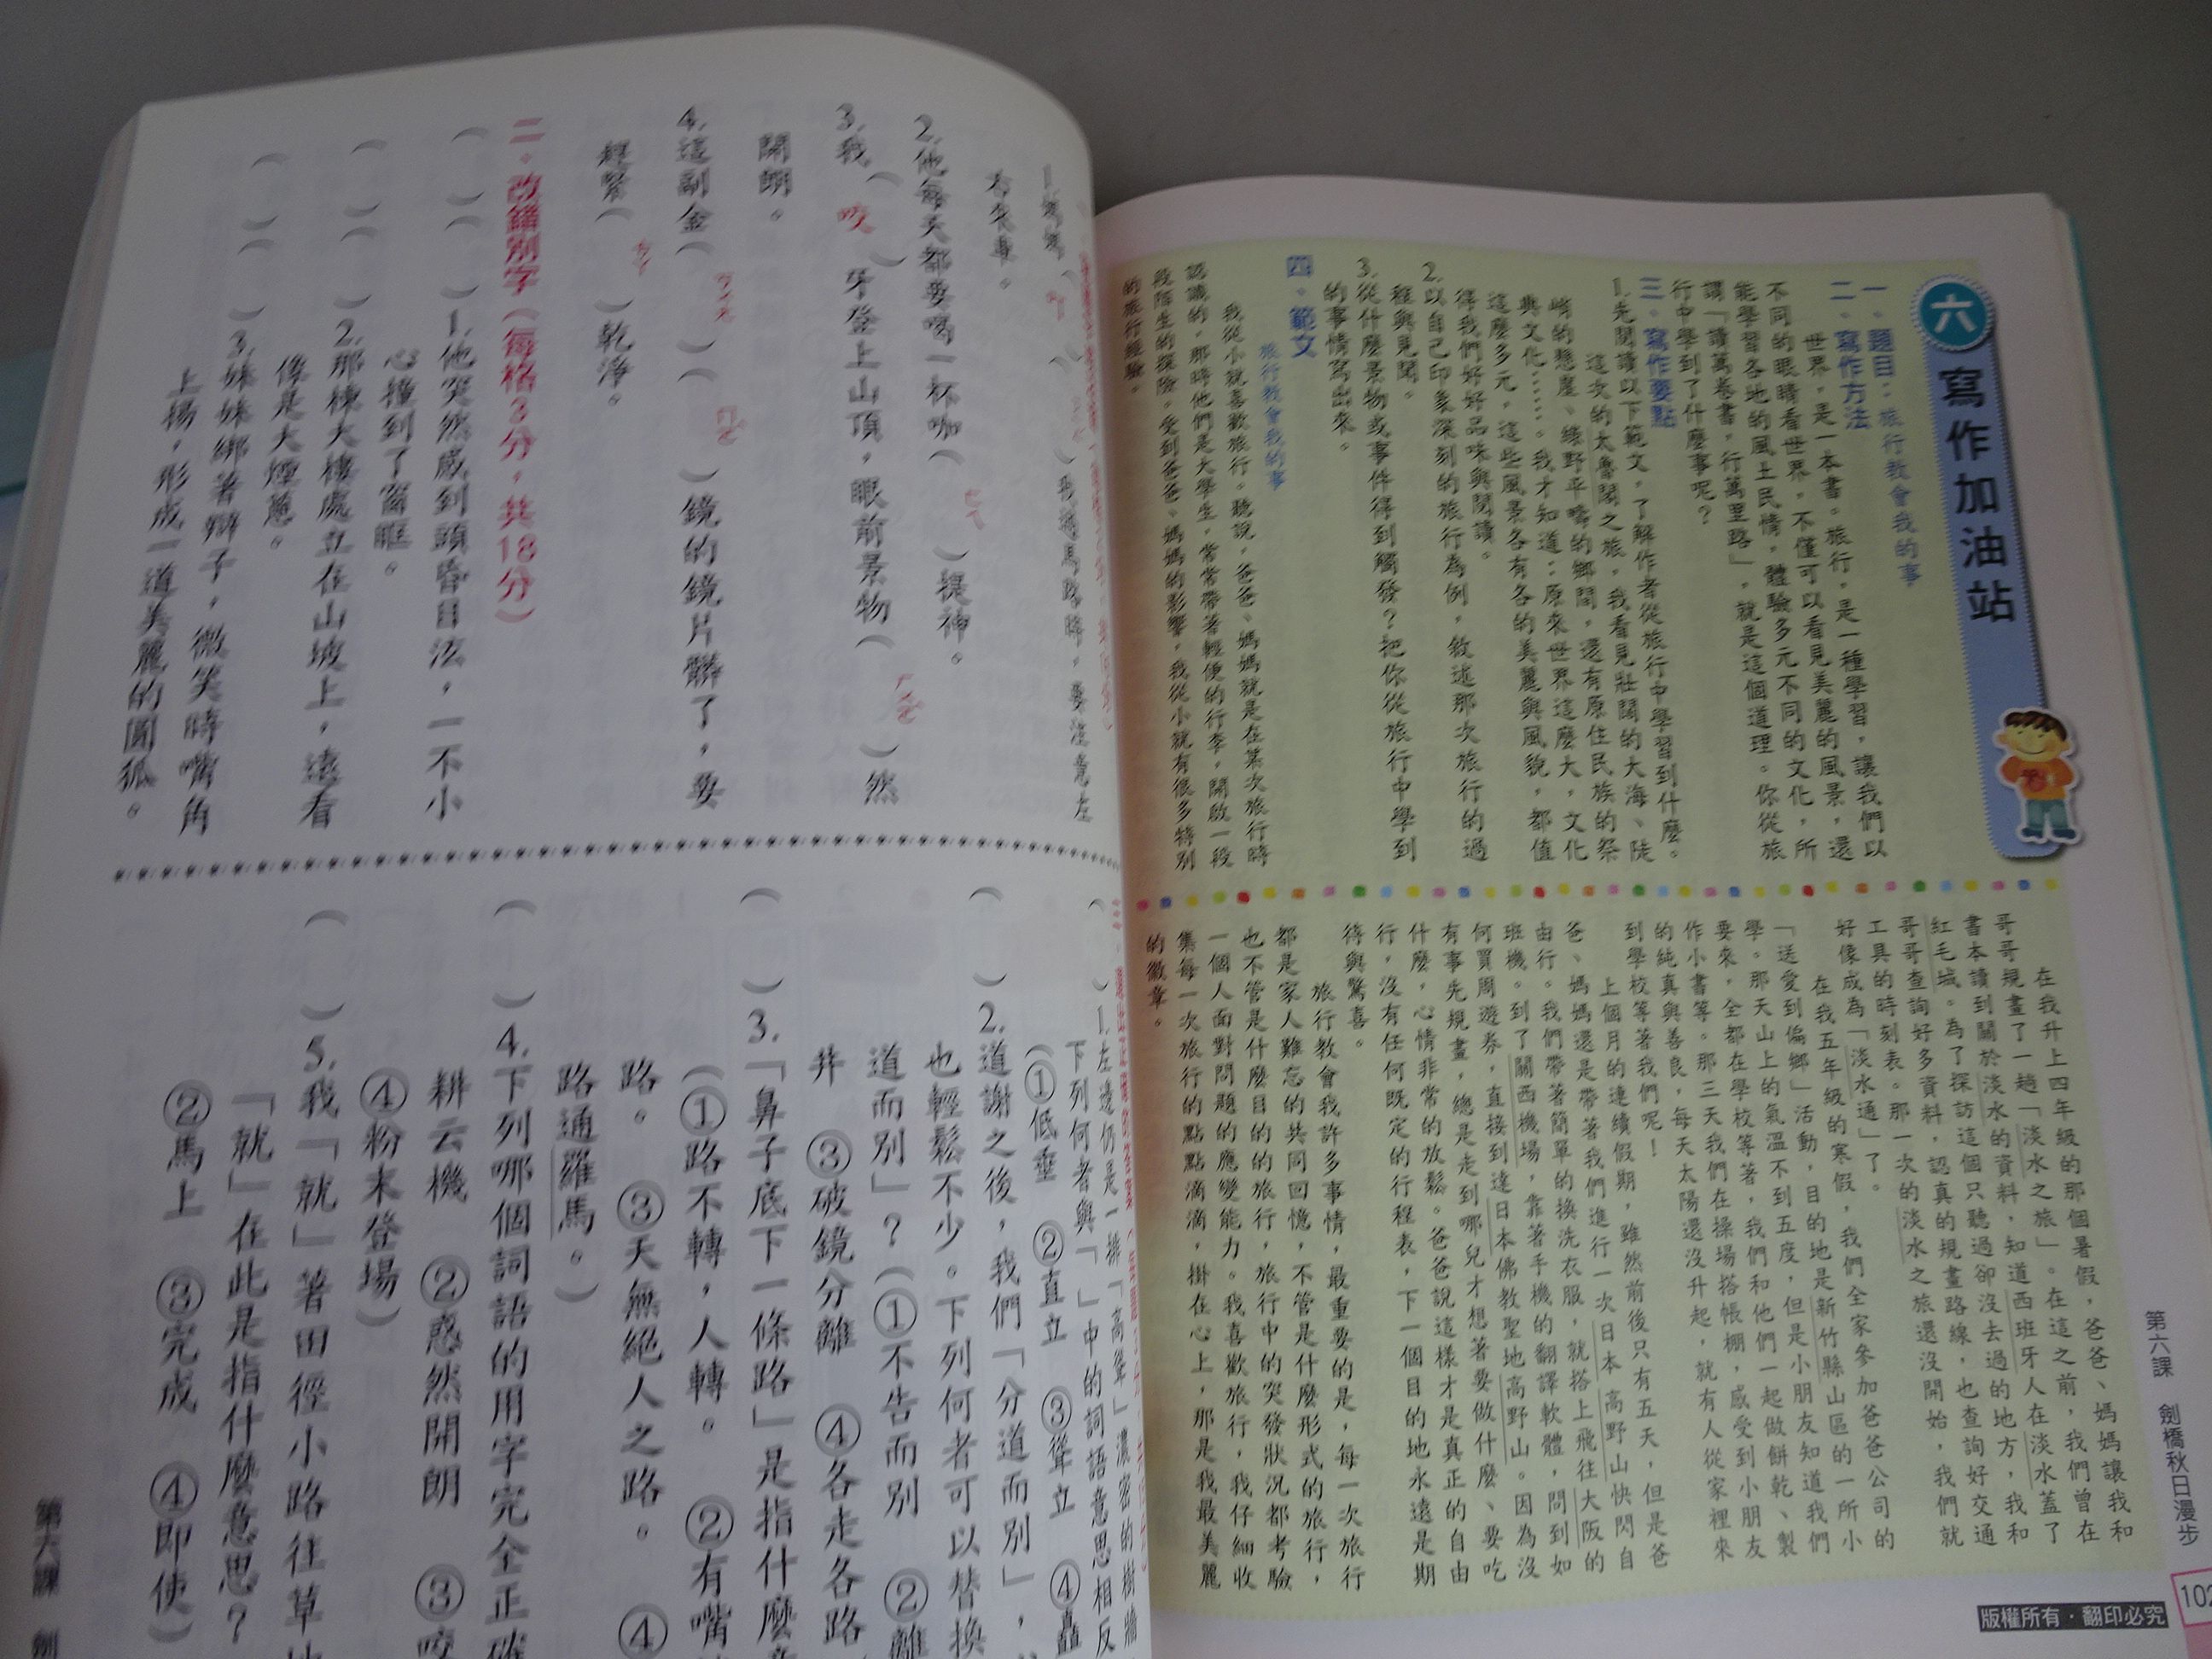 六
寫作加油站
一、題目：旅行教會我的事
二、寫作方法
世界，是一本書。旅行，是一種學習，讓我們以
不同的眼睛看世界，不僅可以看見美麗的風景，還
能學習各地的風土民情，體驗多元不同的文化，所
謂「讀萬卷書，行萬里路」，就是這個道理。你從旅
行中學到了什麼事呢？
三、寫作要點
1.先閱讀以下範文，了解作者從旅行中學習到什麼。
這次的太魯閣之旅，我看見壯闊的大海、陡
峭的懸崖、綠野平疇的鄉間，還有原住民族的祭
典文化……。我才知道：原來世界這麼大，文化
這麼多元，這些風景各有各的美麗與風貌，都值
得我們好好品味與閱讀。
2.以自己印象深刻的旅行為例，敘述那次旅行的過
程與見聞。
3.從什麼景物或事件得到觸發？把你從旅行中學到
的事情寫出來。
四、範文
旅行教會我的事
我從小就喜歡旅行。聽說，爸爸、媽媽就是在某次旅行時
認識的，那時他們是大學生，常常帶著輕便的行李，開啟一段
段陌生的探險。受到爸爸、媽媽的影響，我從小就有很多特別
的旅行經驗。
在我升上四年級的那個暑假，爸爸、媽媽讓我和
哥哥規畫了一趟「淡水之旅」。在這之前，我們曾在
書本讀到關於淡水的資料，知道西班牙人在淡水蓋了
紅毛城。為了探訪這個只聽過卻沒去過的地方，我和
哥哥查詢好多資料，認真的規畫路線，也查詢好交通
工具的時刻表。那一次的淡水之旅還沒開始，我們就
好像成為「淡水通」了。
在我五年級的寒假，我們全家參加爸爸公司的
「送愛到偏鄉」活動，目的地是新竹縣山區的一所小
學。那天山上的氣溫不到五度，但是小朋友知道我們
要來，全都在學校等著，我們和他們一起做餅乾、製
作小書等。那三天我們在操場搭帳棚，感受到小朋友
的純真與善良，每天太陽還沒升起，就有人從家裡來
到學校等著我們呢！
上個月的連續假期，雖然前後只有五天，但是爸
爸、媽媽還是帶著我們進行一次日本高野山快閃自
由行。我們帶著簡單的換洗衣服，就搭上飛往大阪的
班機。到了關西機場，靠著手機的翻譯軟體，問到如
何買周遊券，直接到達日本佛教聖地高野山。因為沒
有事先規畫，總是走到哪兒才想著要做什麼、要吃
什麼，心情非常的放鬆。爸爸說這樣才是真正的自由
行，沒有任何既定的行程表，下一個目的地永遠是期
待與驚喜。
旅行教會我許多事情，最重要的是，每一次旅行
都是家人難忘的共同回憶，不管是什麼形式的旅行，
也不管是什麼目的的旅行，旅行中的突發狀況都考驗
一個人面對問題的應變能力。我喜歡旅行，我仔細收
集每一次旅行的點點滴滴，掛在心上，那是我最美麗
的徽章。
第六課 劍橋秋日漫步
102
版權所有．翻印必究
過馬路時，要注意左
右來車。
2.他每天都要喝一杯咖（ ）提神。
3.我（咬）牙登上山頂，眼前景物（ ）然
開朗。
4.這副金（ ）（ ）鏡的鏡片髒了，要
趕緊（ ㄘㄚ ）乾淨。
二、改錯別字（每格3分，共18分）
（ ）（ ）1.他突然感到頭昏目法，一不小
心撞到了窗眶。
（ ）（ ）2.那棟大樓處立在山坡上，遠看
像是大煙蔥。
（ ）（ ）3.妹妹綁著辯子，微笑時嘴角
上揚，形成一道美麗的圓狐。
（ ）1.左邊仍是一排「高聳」濃密的樹牆
下列何者與「 」中的詞語意思相反
（①低垂 ②直立 ③聳立 ④矗
（ ）2.道謝之後，我們「分道而別」，
也輕鬆不少。下列何者可以替換
道而別」？（①不告而別 ②離
井 ③破鏡分離 ④各走各路
（ ）3.「鼻子底下一條路」是指什麼
（①路不轉，人轉。 ②有嘴
路。 ③天無絕人之路。 ④
路通羅馬。）
（ ）4.下列哪個詞語的用字完全正確
耕云機 ②惑然開朗 ③咬
④粉末登場）
（ ）5.我「就」著田徑小路往草地
「就」在此是指什麼意思？
②馬上 ③完成 ④即使）
第六課 劍